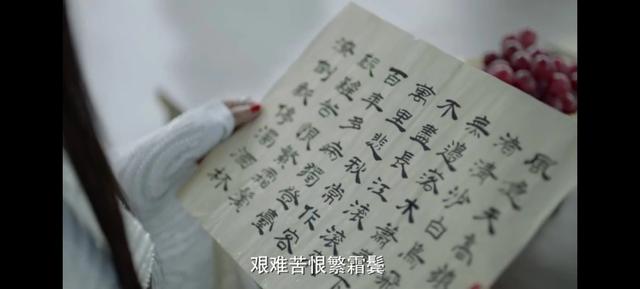 風急天高猿
渚清沙白鳥
無邊落木蕭
不盡長江滾滾
萬里悲秋常作客
百年多病獨登臺
艱難苦恨繁霜鬢
潦倒新停濁酒杯
艰难苦恨繁霜鬓